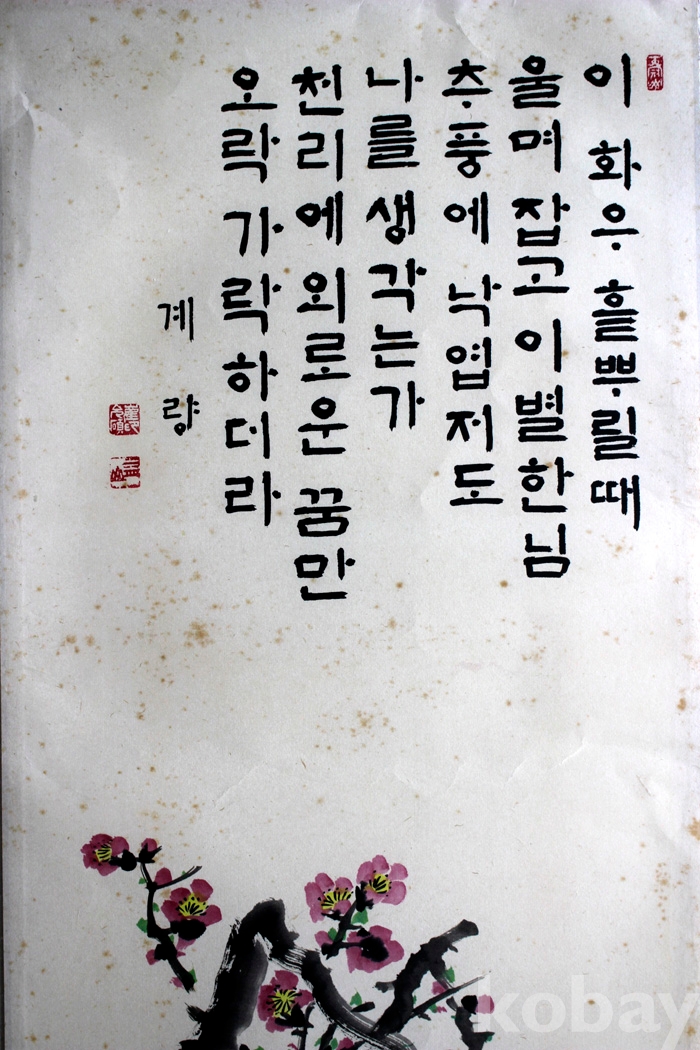 이 화우 흩뿌릴때
울며 잡고 이별한 님
추풍에 낙엽저도
나를 생각는가
천리에 외로운 꿈만
오락가락 하더라
계량
kobay